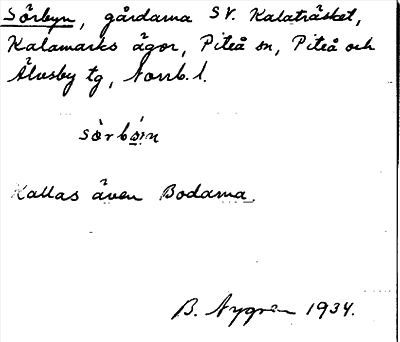 Sörbyn, gårdarna SV. Kalaträsket,
Kalamarks ägor, Piteå sn, Piteå och
Älvsby tg, Norrb. l.
sö̀rbo̲̍m
Kallas även Bodarna.
B. Nygren 1934.